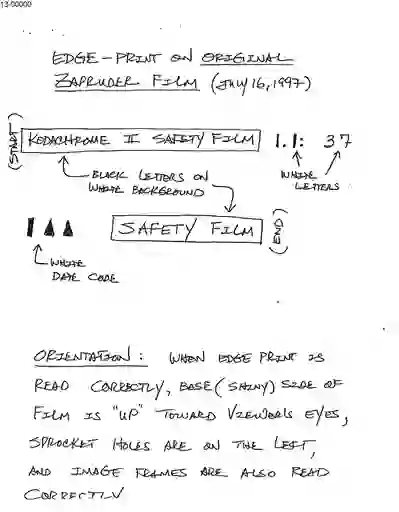 13-00000
EDGE-PRINT ON ORIGINAL
ZAPRUDER FILM (JULY 16, 1997)
(START) KODACHROME II SAFETY FILM 1.1: 37
BLACK LETTERS ON
WHITE BACKGROUND
WHITE
LETTERS
▮▲▲ SAFETY FILM (END)
WHITE
DATE CODE
ORIENTATION: WHEN EDGE PRINT IS
READ CORRECTLY, BASE (SHINY) SIDE OF
FILM IS "UP" TOWARD VIEWER'S EYES,
SPROCKET HOLES ARE ON THE LEFT,
AND IMAGE FRAMES ARE ALSO READ
CORRECTLY